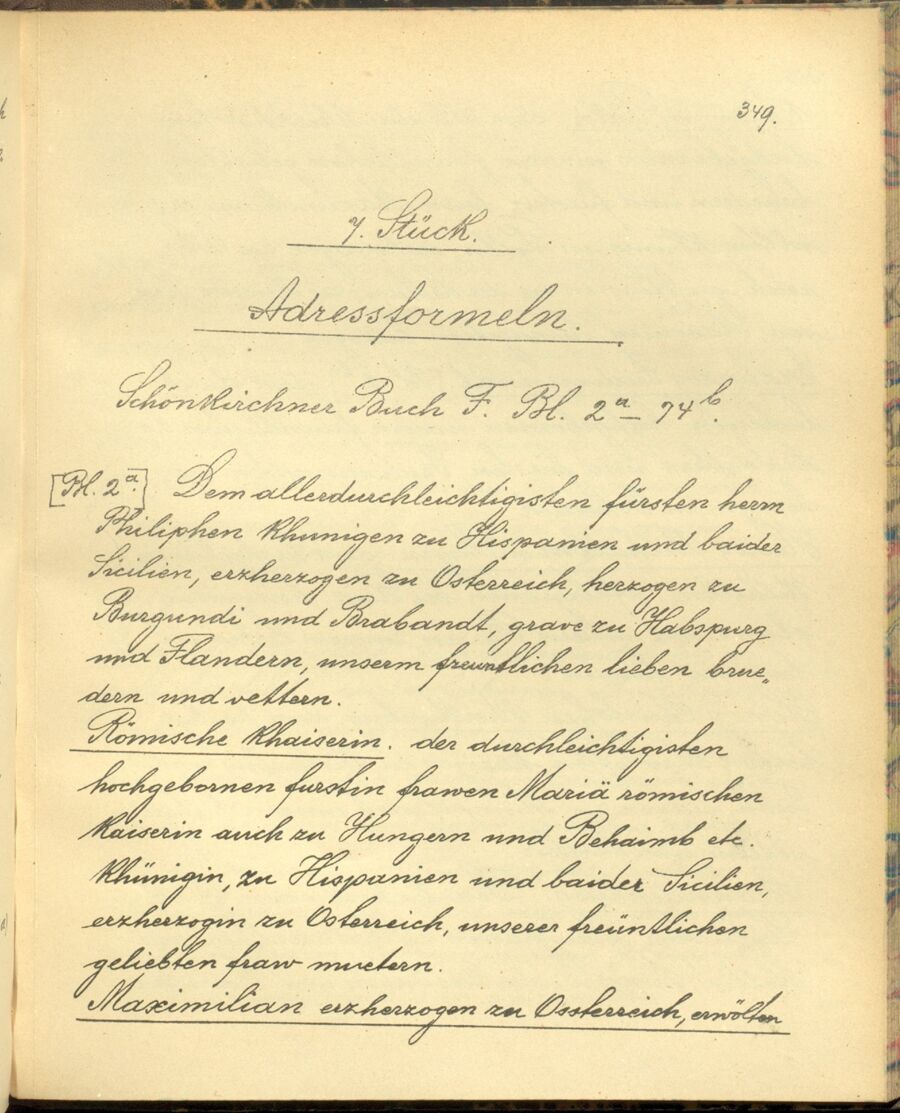 349.
7. Stück.
Adressformeln.
Schönkirchner Buch F. Bl. 2a – 74b.
[Bl. 2a.] Dem allerdurchleichtigisten fürsten herrn
Philiphen khunigen zu Hispanien und baider
Sicilien, erzherzogen zu Osterreich, herzogen zu
Burgundi und Brabandt, grave zu Habspurg
und Flandern, unserm freuntlichen lieben brue„
dern und vettern.
Römische khaiserin. der durchleichtigisten
hochgebornen furstin frawen Mariä römischen
kaiserin auch zu Hungern und Behaimb etc.
khünigin, zu Hispanien und baider Sicilien,
erzherzogin zu Osterreich, unserer freüntlichen
geliebten fraw muetern.
Maximilian erzherzogen zu Ossterreich, erwölten